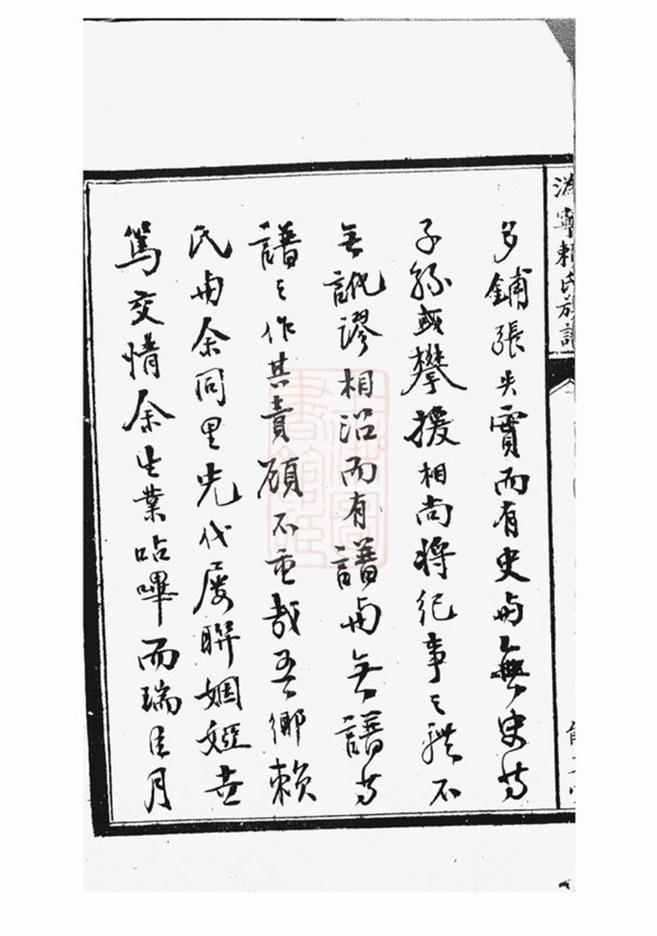 溈寧賴氏族譜
多鋪張失實而有史與無史等
子孫或攀援相尚將紀事之體不
無訛謬相沿而有譜與無譜等
譜之作其責顧不重哉吾鄉賴
氏與余同里先代屢聯姻婭世
篤交情余生業呫嗶而瑞臣月
上海圖
書館藏